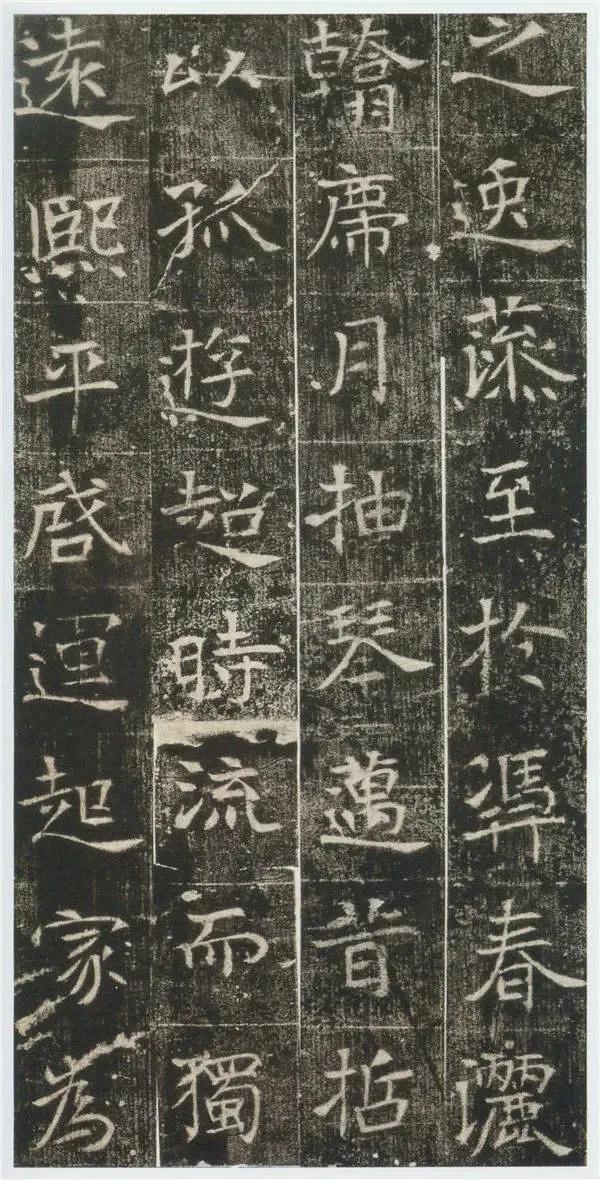 之逸藻至於凴春灑
翰席月抽琴邁昔哲
以孤遊超時流而獨
遠熙平啓運起家為